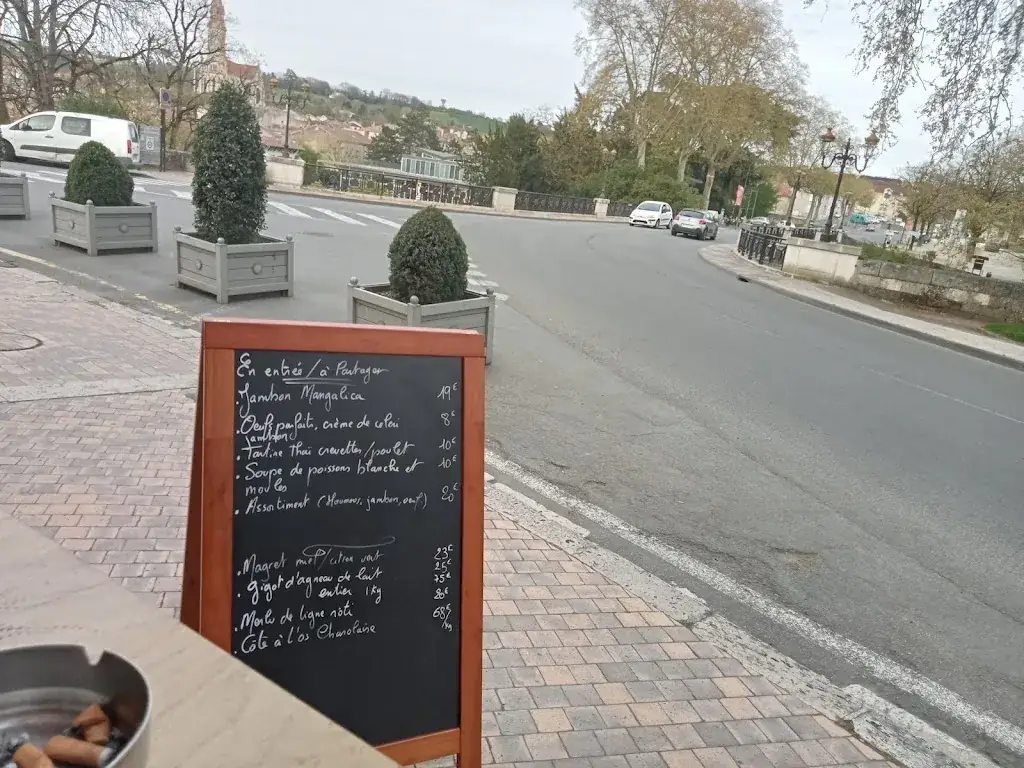 En entrées / à Partager
. Jambon Mangalica 19€
. Oeufs parfaits, crème de céleri 8€
jambon
. Tartine Thaï crevettes/poulet 10€
. Soupe de poissons blanche et 10€
moules
. Assortiment (Houmous, jambon, oeuf) 20€
. Magret miel/citron vert 23€
. Gigot d'agneau de lait 25€
entier 1Kg 75€
. Merlu de ligne rôti 20€
. Côte à l'os Charolaise 68€
/Kg